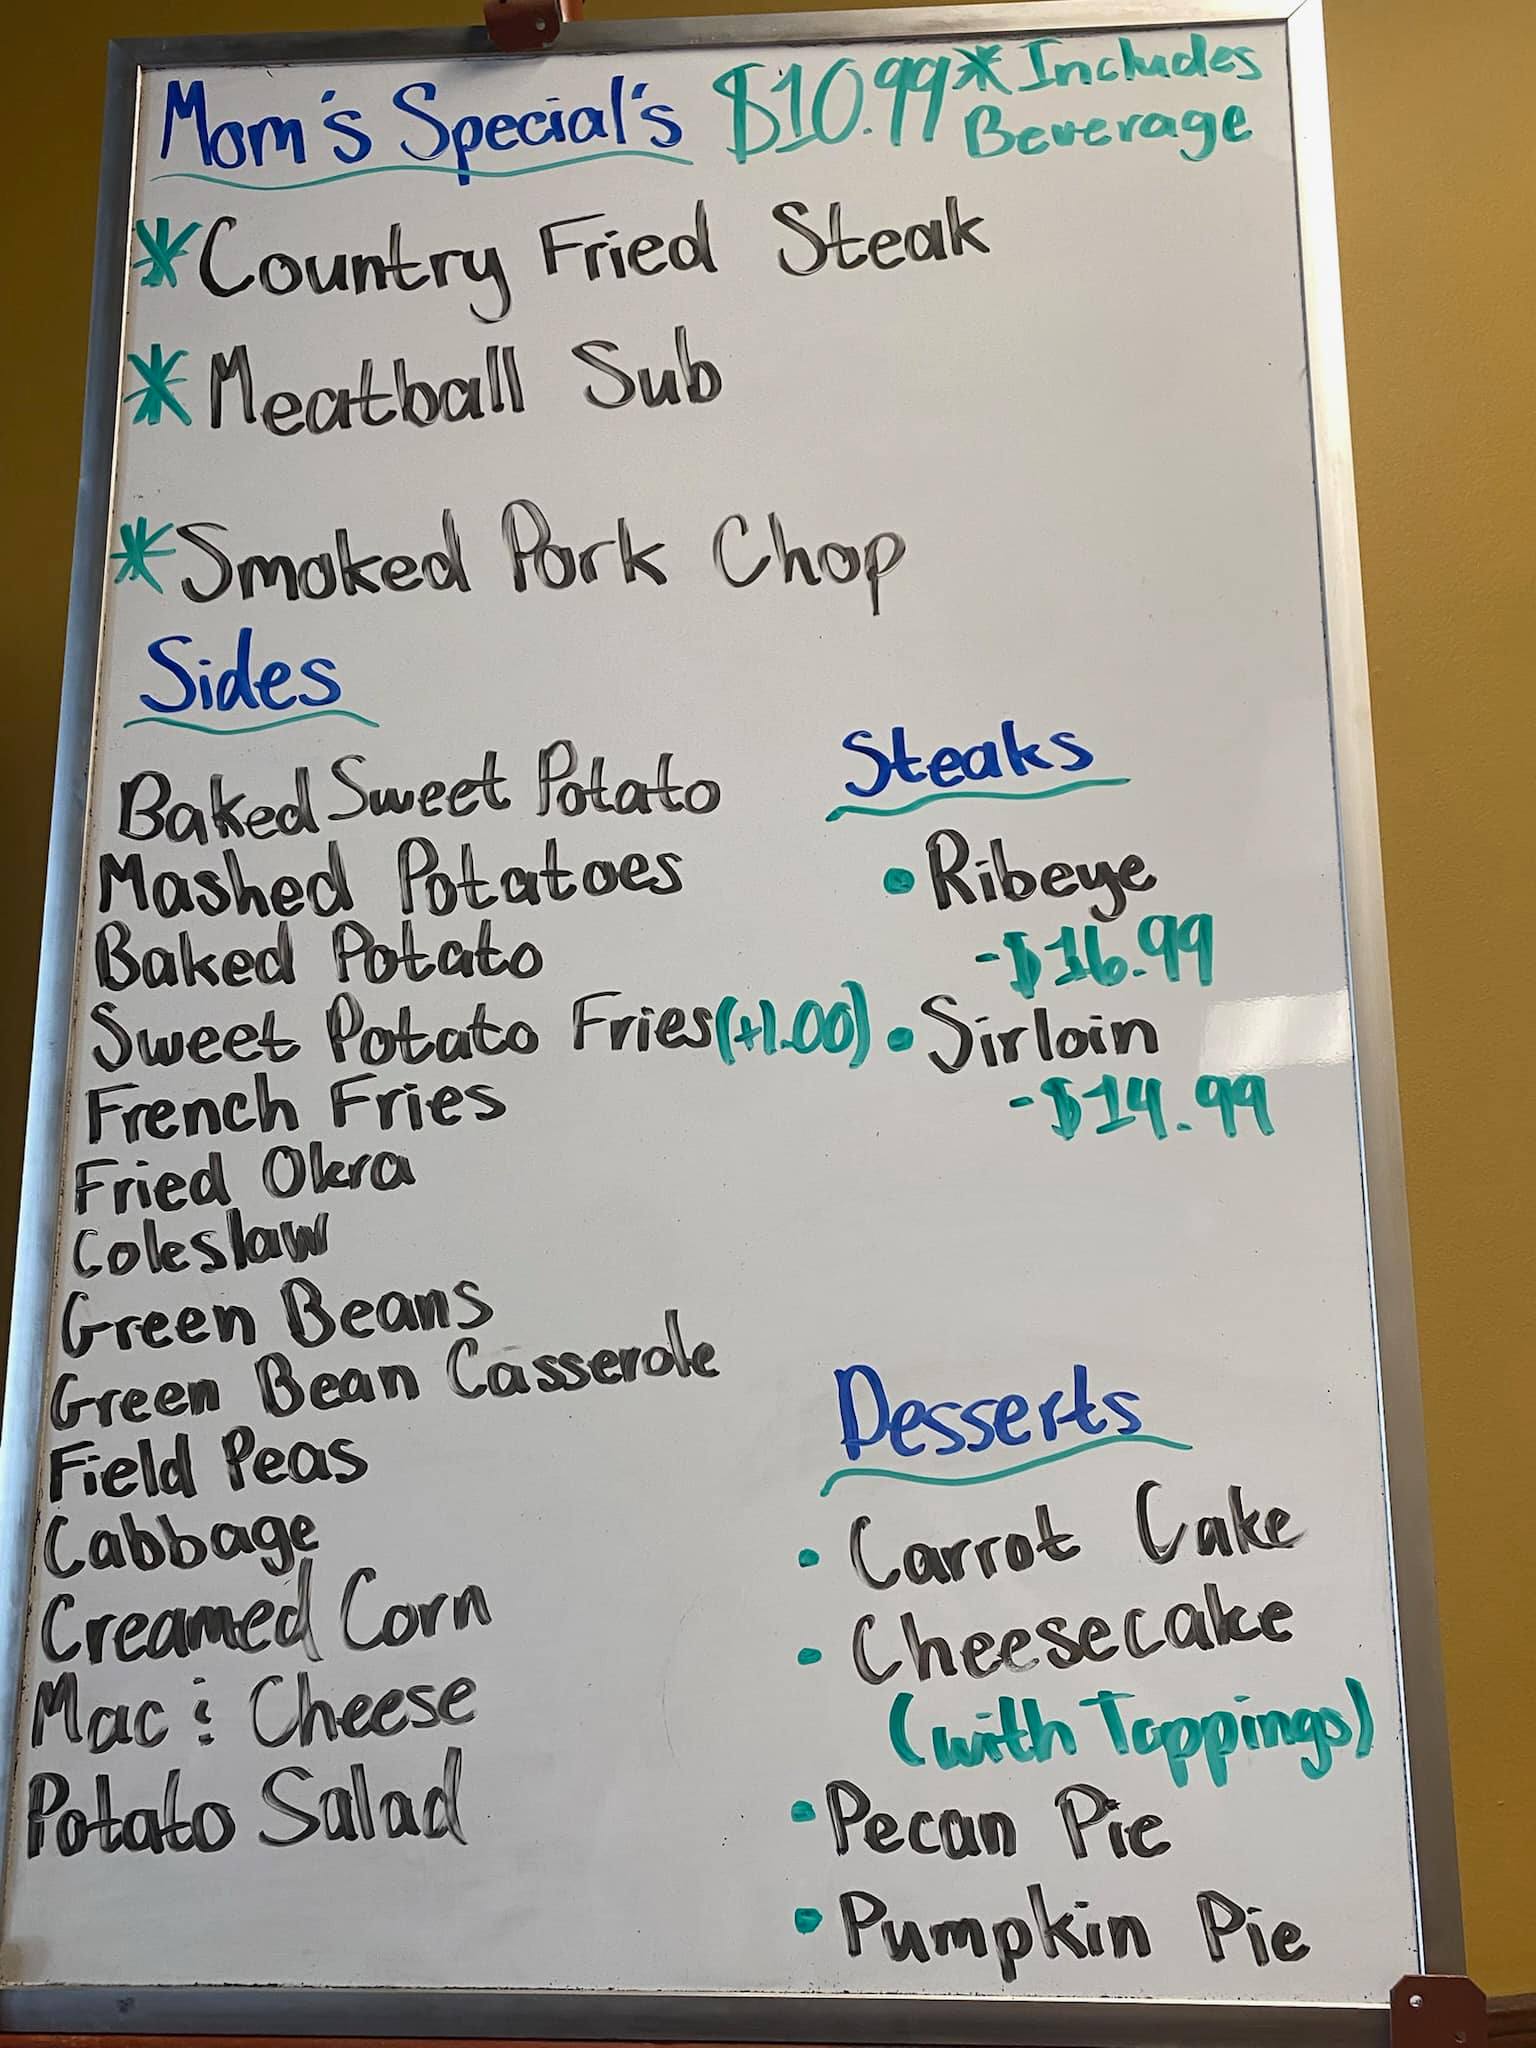 Mom's Special's $10.99 * Includes
Beverage
* Country Fried Steak
* Meatball Sub
* Smoked Pork Chop
Sides
Baked Sweet Potato
Mashed Potatoes
Baked Potato
Sweet Potato Fries (+1.00)
French Fries
Fried Okra
Coleslaw
Green Beans
Green Bean Casserole
Field Peas
Cabbage
Creamed Corn
Mac & Cheese
Potato Salad
Steaks
• Ribeye
-$16.99
• Sirloin
-$14.99
Desserts
• Carrot Cake
• Cheesecake
(with Toppings)
• Pecan Pie
• Pumpkin Pie